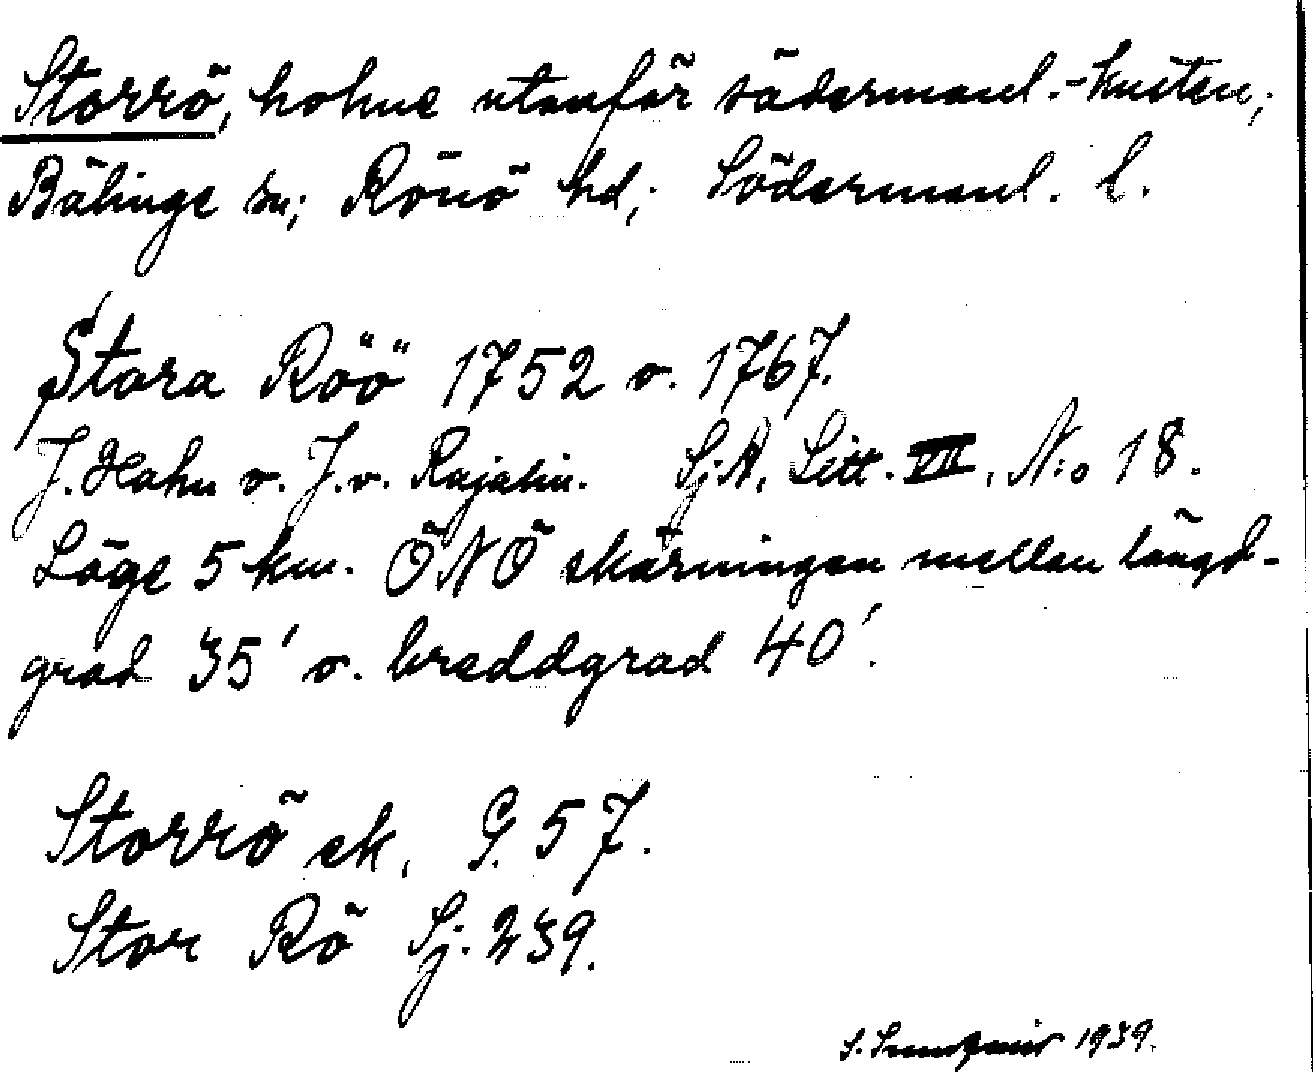 Storrö, holme utanför södermanl.-kusten;
Bälinge sn; Rönö hd; Södermanl. l.
Stora Röö 1752 o. 1767.
J. Hahn o. J.v. Rajalin. Sj.A. Litt. VII. N:o 18.
Läge 5 km. ÖNÖ skärningen mellan längd-
grad 35' o. breddgrad 40'.
Storrö ek. G. 57.
Stor Rö Sj. 239.
S. 1939.